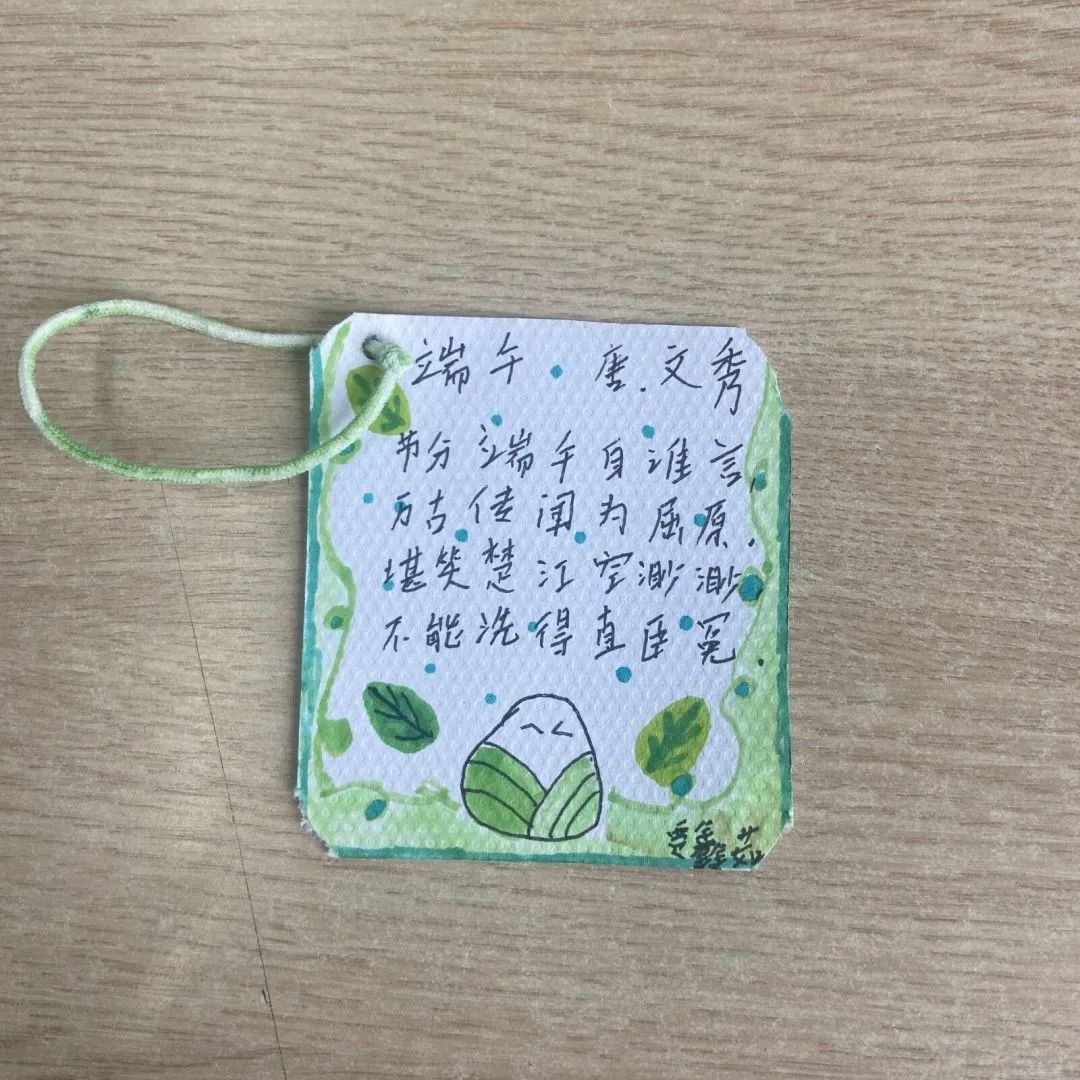 端午 唐.文秀
节分端午身谁言,
万古传闻为屈原.
堪笑楚江空渺渺
不能洗得直臣冤.